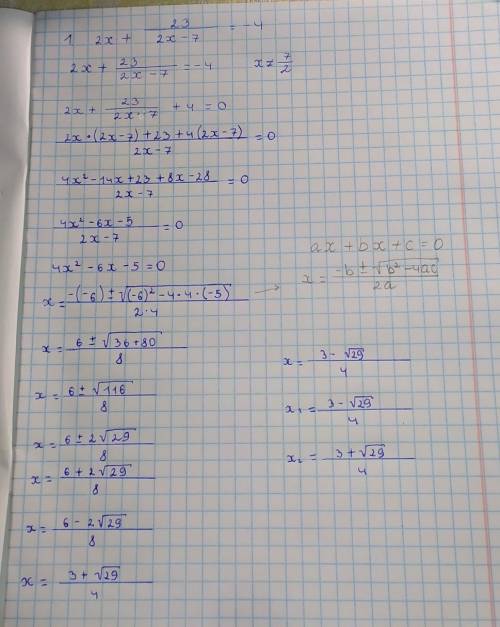 1. 2x + 23/(2x - 7) = -4
2x + 23/(2x - 7) = -4    x ≠ 7/2
2x + 23/(2x - 7) + 4 = 0
(2x · (2x - 7) + 23 + 4(2x - 7))/(2x - 7) = 0
(4x² - 14x + 23 + 8x - 28)/(2x - 7) = 0
(4x² - 6x - 5)/(2x - 7) = 0
4x² - 6x - 5 = 0
x = (-(-6) ± √((-6)² - 4 · 4 · (-5)))/(2 · 4) →
x = (6 ± √(36 + 80))/8
x = (6 ± √116)/8
x = (6 ± 2√29)/8
x = (6 + 2√29)/8
x = (6 - 2√29)/8
x = (3 + √29)/4
ax + bx + c = 0
x = (-b ± √(b² - 4ac))/(2a)
x = (3 - √29)/4
x₁ = (3 - √29)/4
x₂ = (3 + √29)/4